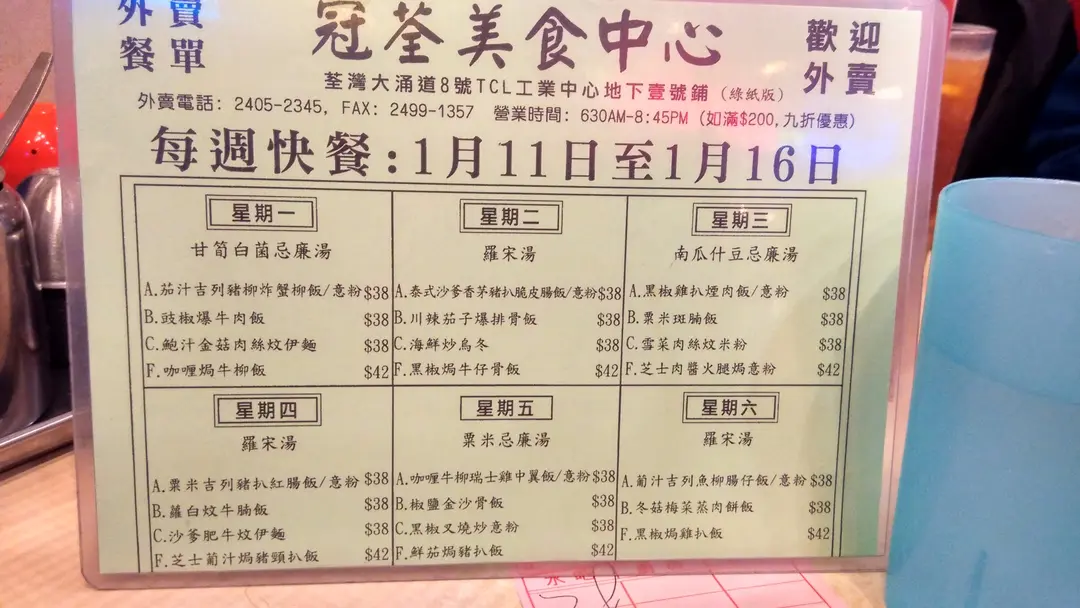 外賣
餐單
冠荃美食中心
歡迎
外賣
荃灣大涌道8號TCL工業中心地下壹號鋪 (綠紙版)
外賣電話: 2405-2345, FAX: 2499-1357 營業時間: 630AM-8:45PM (如滿$200,九折優惠)
每週快餐:1月11日至1月16日
星期一
甘筍白菌忌廉湯
A.茄汁吉列豬柳炸蟹柳飯/意粉$38
B.豉椒爆牛肉飯 $38
C.鮑汁金菇肉絲炆伊麵 $38
F.咖喱焗牛柳飯 $42
星期二
羅宋湯
A.泰式沙爹香茅豬扒脆皮腸飯/意粉$38
B.川辣茄子爆排骨飯 $38
C.海鮮炒烏冬 $38
F.黑椒焗牛仔骨飯 $42
星期三
南瓜什豆忌廉湯
A.黑椒雞扒煙肉飯/意粉 $38
B.粟米斑腩飯 $38
C.雪菜肉絲炆米粉 $38
F.芝士肉醬火腿焗意粉 $42
星期四
羅宋湯
A.粟米吉列豬扒紅腸飯/意粉 $38
B.蘿白炆牛腩飯 $38
C.沙爹肥牛炆伊麵 $38
F.芝士葡汁焗豬頸扒飯 $42
星期五
粟米忌廉湯
A.咖喱牛柳瑞士雞中翼飯/意粉 $38
B.椒鹽金沙骨飯 $38
C.黑椒叉燒炒意粉 $38
F.鮮茄焗豬扒飯 $42
星期六
羅宋湯
A.葡汁吉列魚柳腸仔飯/意粉 $38
B.冬菇梅菜蒸肉餅飯 $38
F.黑椒焗雞扒飯 $42